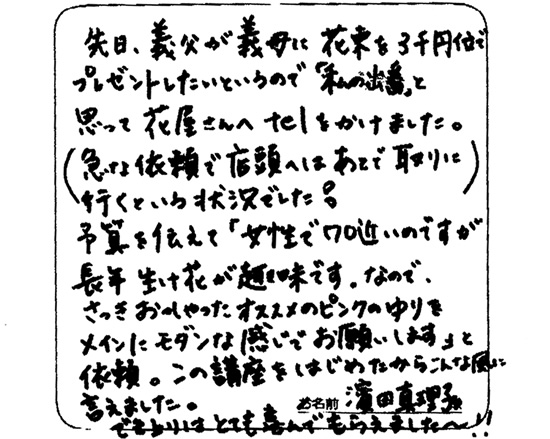 先日、義父が義母に花束を3千円位で
プレゼントしたいというので「私の出番」と
思って花屋さんへtelをかけました。
(急な依頼で店頭へはあとで取りに
行くという状況でした。)
予算を伝えて「女性で70近いのですが
長年生け花が趣味です。なので、
さっきおっしゃったオススメのピンクのゆりを
メインにモダンな感じでお願いします」と
依頼。この講座をはじめたからこんな風に
言えました。
お名前 濱田真理子様
でき上りはとても喜んでもらえました〜!!